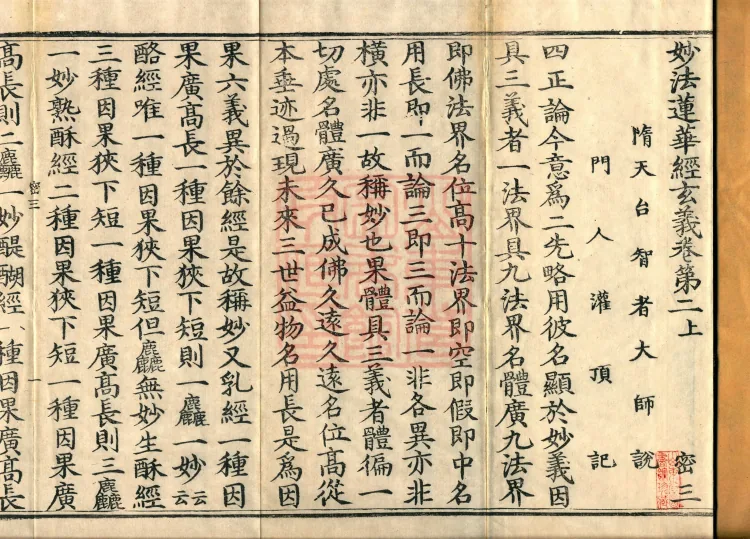 妙法蓮華經玄義卷第二上 密三
隋天台智者大師說
門人灌頂記
四正論今意爲二先略用彼名顯於妙義因
具三義者一法界具九法界名體廣九法界
即佛法界名位髙十法界即空即假即中名
用長即一而論三即三而論一非各異亦非
橫亦非一故稱妙也果體具三義者體徧一
切處名體廣久已成佛久遠久遠名位髙從
本垂迹過現未來三世益物名用長是爲因
果六義異於餘經是故稱妙又乳經一種因
果廣髙長一種因果狹下短則一麤一妙云云
酪經唯一種因果狹下短但麤無妙生酥經
三種因果狹下短一種因果廣髙長則三麤
一妙熟酥經二種因果狹下短一種因果廣
密三 一
髙長則二麤一妙醍醐經一種因果廣髙長